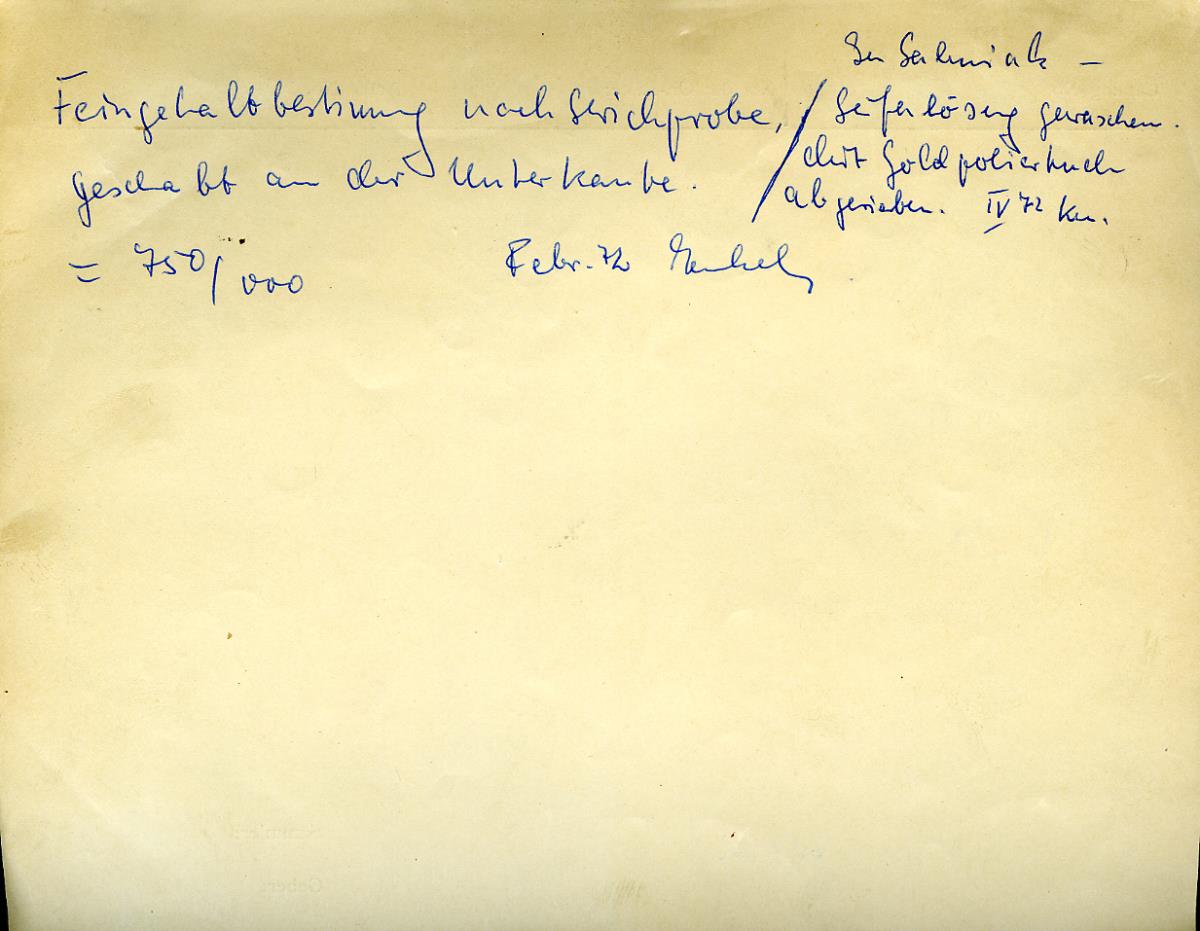 Feingehaltbestimung nach Strichprobe,
geschabt an der Unterkante.
= 750/000 Febr. 72
In Salmiak –
Seifenlösung gewaschen.
Mit Goldpoliertuch
abgerieben. IV 72 Ku.